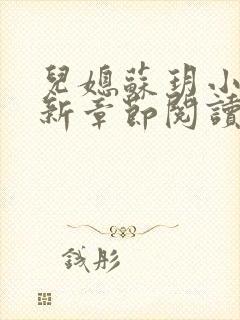 兒媳蘇玥小
新章節閱讀
錢彤